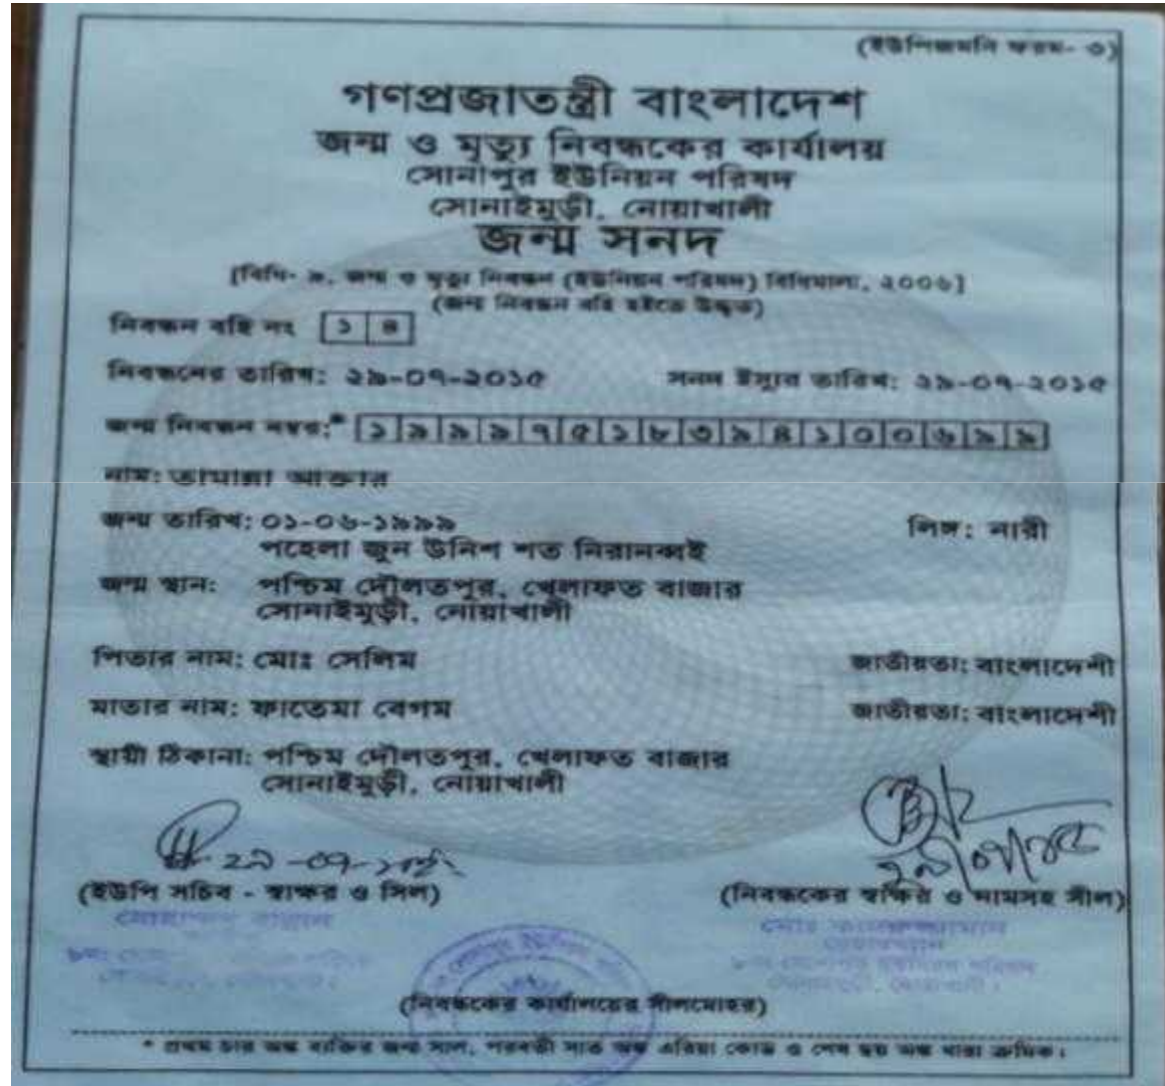 (ইউপিজমনি ফরম- ৩)
গণপ্রজাতন্ত্রী বাংলাদেশ
জন্ম ও মৃত্যু নিবন্ধকের কার্যালয়
সোনাপুর ইউনিয়ন পরিষদ
সোনাইমুড়ী, নোয়াখালী
জন্ম সনদ
[বিধি- ৯, জন্ম ও মৃত্যু নিবন্ধন (ইউনিয়ন পরিষদ) বিধিমালা, ২০০৬]
(জন্ম নিবন্ধন বহি হইতে উদ্ধৃত)
নিবন্ধন বহি নং ১৪
নিবন্ধনের তারিখ: ২৯-০৭-২০১৫ সনদ ইস্যুর তারিখ: ২৯-০৭-২০১৫
জন্ম নিবন্ধন নম্বর:* ১৯৯৯৭৫১৮৩৯৪১০০৬৯৯
নাম: তামান্না আক্তার
জন্ম তারিখ: ০১-০৬-১৯৯৯ লিঙ্গ: নারী
পহেলা জুন উনিশ শত নিরানব্বই
জন্ম স্থান: পশ্চিম দৌলতপুর, খেলাফত বাজার
সোনাইমুড়ী, নোয়াখালী
পিতার নাম: মোঃ সেলিম জাতীয়তা: বাংলাদেশী
মাতার নাম: ফাতেমা বেগম জাতীয়তা: বাংলাদেশী
স্থায়ী ঠিকানা: পশ্চিম দৌলতপুর, খেলাফত বাজার
সোনাইমুড়ী, নোয়াখালী
২৯-০৭-১৫ ২৯/০৭/১৫
(ইউপি সচিব - স্বাক্ষর ও সিল) (নিবন্ধকের স্বাক্ষর ও নামসহ সীল)
(নিবন্ধকের কার্যালয়ের সীলমোহর)
* প্রথম চার অঙ্ক ব্যক্তির জন্ম সাল, পরবর্তী সাত অঙ্ক এরিয়া কোড ও শেষ ছয় অঙ্ক ধারা ক্রমিক।